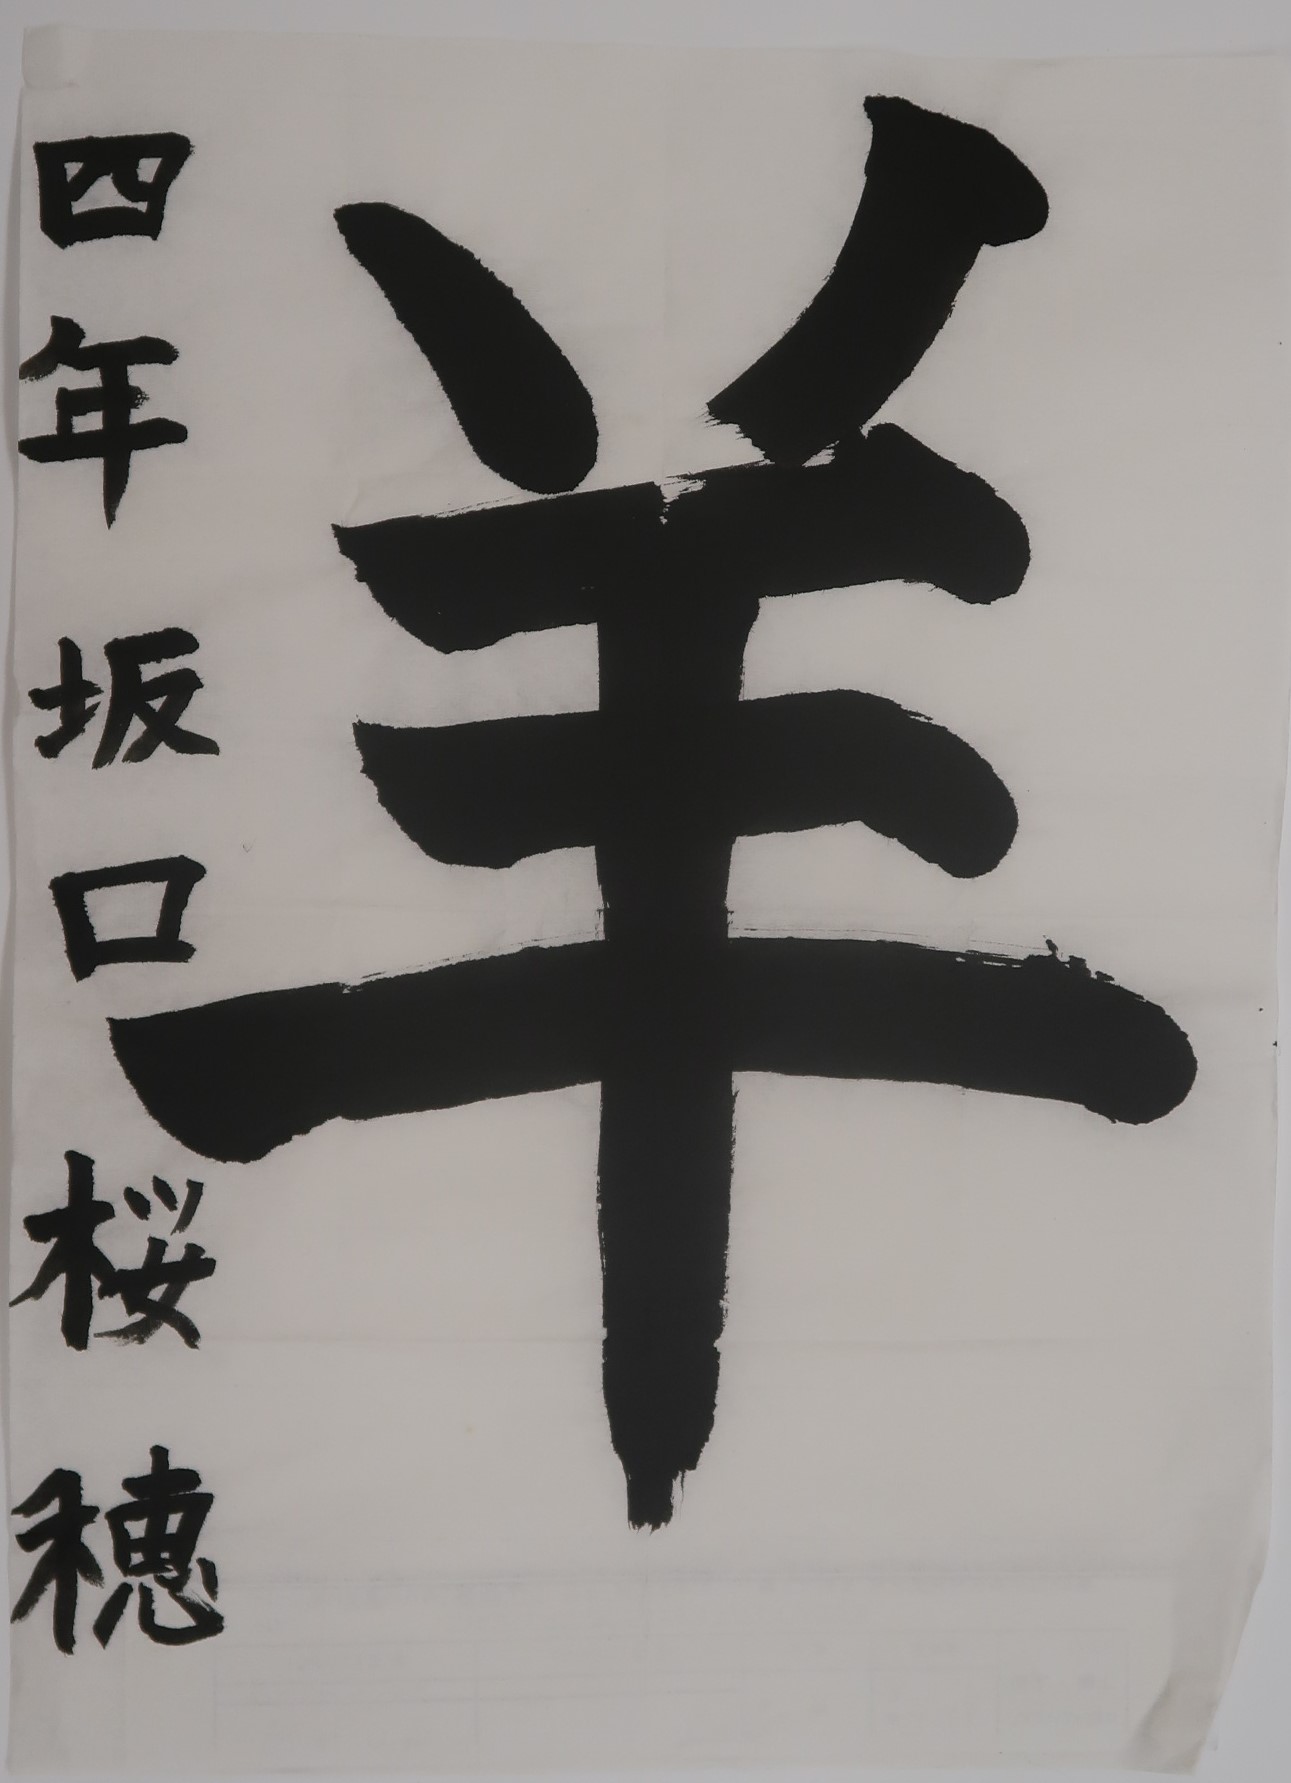 羊
四年 坂口桜穂